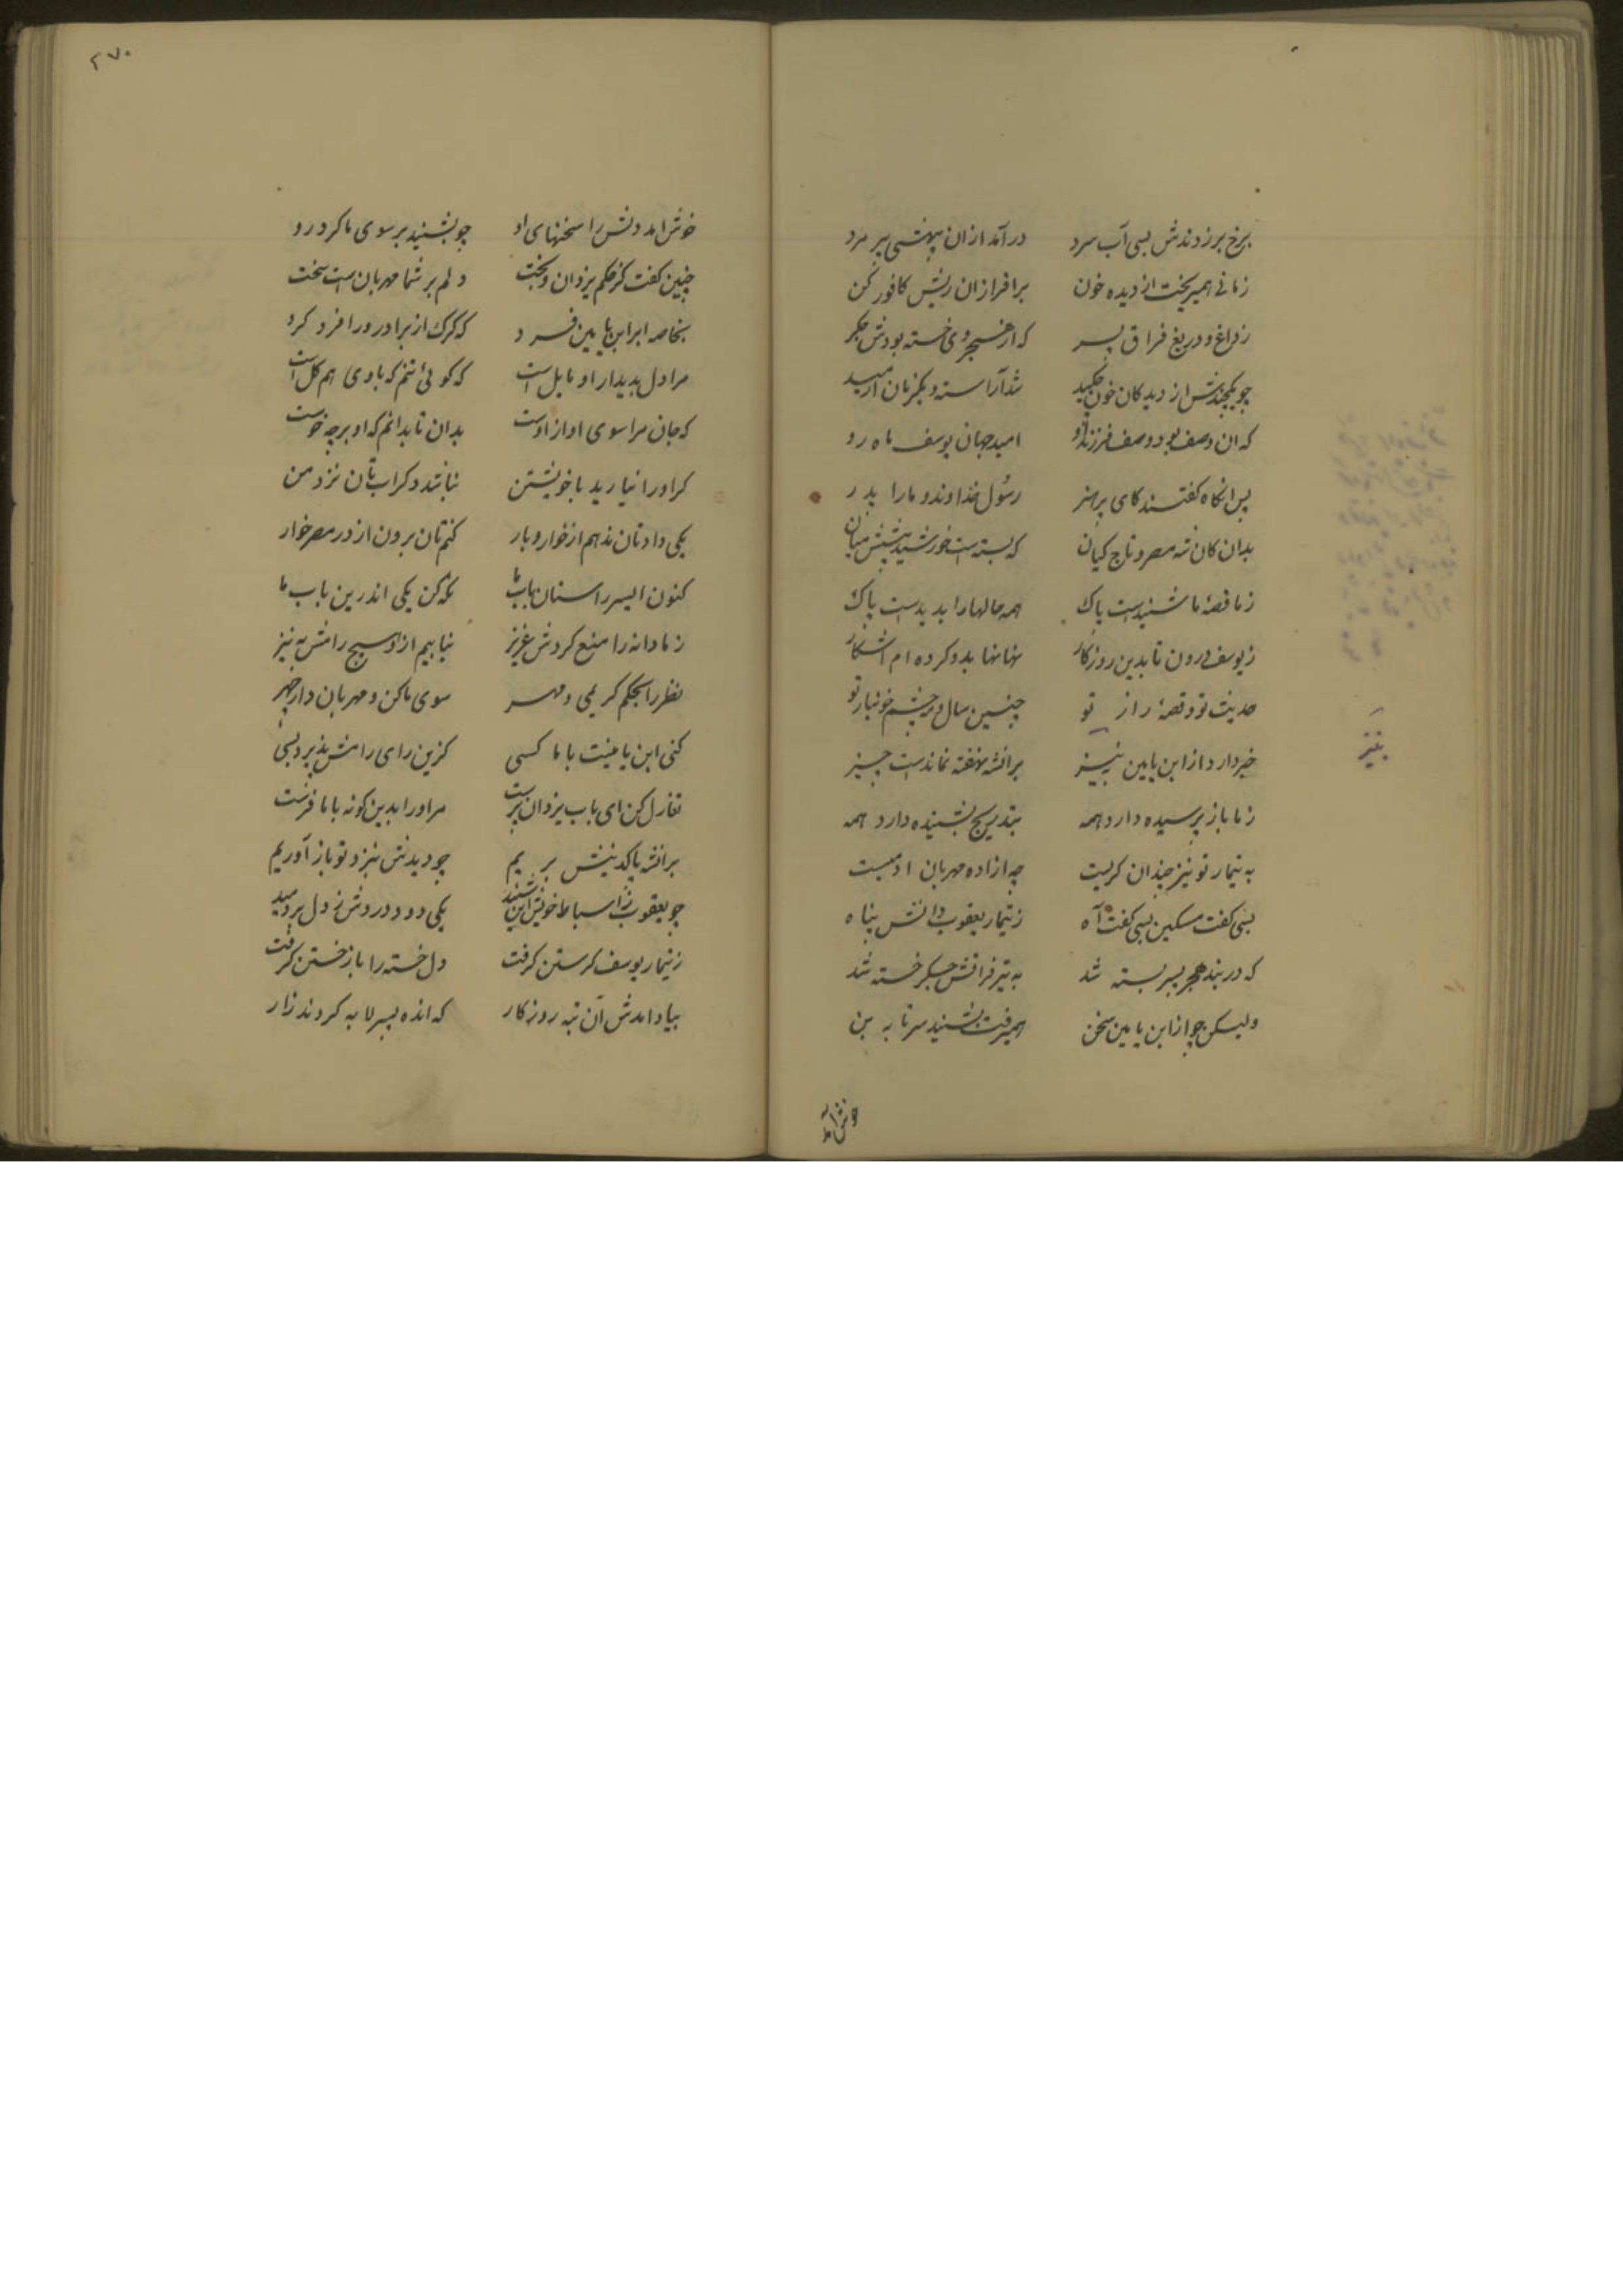 برخ برزدندش بسی آب سرد درآمد ازان بیهشی پیر مرد
زمانی همیریخت از دیده خون برافراز ان ریش کافور کن
زداغ و دریغ فراق پسر که از هجر وی خسته بودش جگر
چو یکچندش از دیدکان خون چکید شد آراسته و یکزمان ارمید
که ان وصف بود وصف فرزند او امید جهان یوسف ماه رو
پس انکاه کفتند کای پرهنر رسول خداوند و ما را پدر
بدان کان شه مصر و تاج کیان که بسته است خورشید پیشش میان
زما قصهٔ ما شنیدست پاک همه حالها را بدیدست پاک
زیوسف درون تا بدین روزکار نهانها بدو کرده ام اشکار
حدیث تو و قصهٔ راز تو چنین سال و مه چشم خونبار تو
خبر دارد از ابن یامین نیز برانشه نهفته نماندست چیز
زما باز پرسیده دارد همه بتدریج بشنیده دارد همه
به تیمار تو نیز چندان کریست چه ازاده مهربان ادمیست
بسی کفت مسکین بسی کفت آه زتیمار یعقوب دانش پناه
که در بند هجر پسر بسته شد به تیر فراقش جکر خسته شد
ولیکن چو از ابن یامین سخن همیرفت بشنید سر تا به بن
خوش امد
بنیز
۲۷۰
خوش امد دلش را سخنهای او چو بشنید بر سوی ما کرد رو
چنین کفت کز حکم یزدان و بخت دلم بر شما مهربان است سخت
بخاصه ابر ابن یامین فرد که کرک از برادر ورا فرد کرد
مرا دل بدیدار او مایل است که کوئی تنم که باوی هم کل است
که جان مرا سوی او از اوست بدان تا بدانم که او بر چه خوست
کر او را نیارید با خویشتن نباشد دکر ابتان نزد من
یکی دادتان ندهم از خواروبار کنمتان برون از در مصر خوار
کنون ایسر راستان باب ما نکه کن یکی اندرین باب ما
زما دانه را منع کردش عزیز نیابیم ازو هیچ رامش به نیز
نظر را بحکم کریمی و مهر سوی ما کن و مهربان دار چهر
کنی ابن یامینت با ما کسی کزین رای رامش پذیرد بسی
تغافل کن ای باب یزدان پرست مر او را بدین کونه با ما فرست
برانشه پاکدینش بریم چو دیدش بنزد تو باز آوریم
چو یعقوب زاسباط خویش این شنید یکی دود دردش ز دل بردمید
زتیمار یوسف کرستن کرفت دل خسته را باز خستن کرفت
بیاد امدش آن تبه روزکار که انده پسر لابه کردند زار